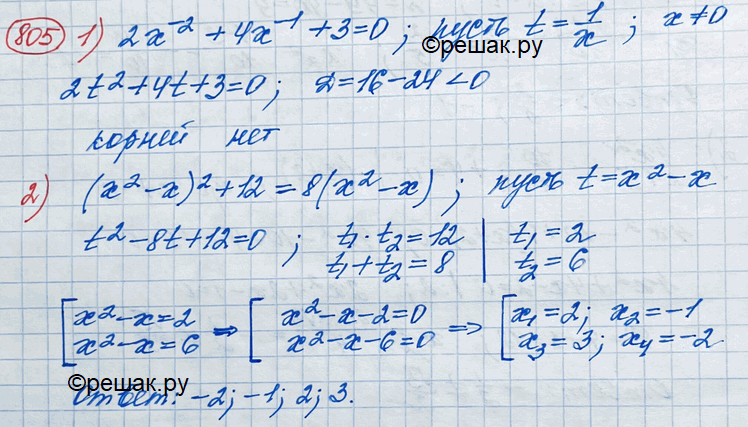 805 1) 2x⁻² + 4x⁻¹ + 3 = 0; пусть t = 1/x; x ≠ 0
©решак.ру
2t² + 4t + 3 = 0; D = 16 - 24 < 0
корней нет
2) (x² - x)² + 12 = 8(x² - x); пусть t = x² - x
t² - 8t + 12 = 0; t₁ · t₂ = 12 | t₁ = 2
t₁ + t₂ = 8 | t₂ = 6
[ x² - x = 2 ⇒ [ x² - x - 2 = 0 ⇒ [ x₁ = 2; x₂ = -1
x² - x = 6 x² - x - 6 = 0 x₃ = 3; x₄ = -2
©решак.ру
Ответ: -2; -1; 2; 3.